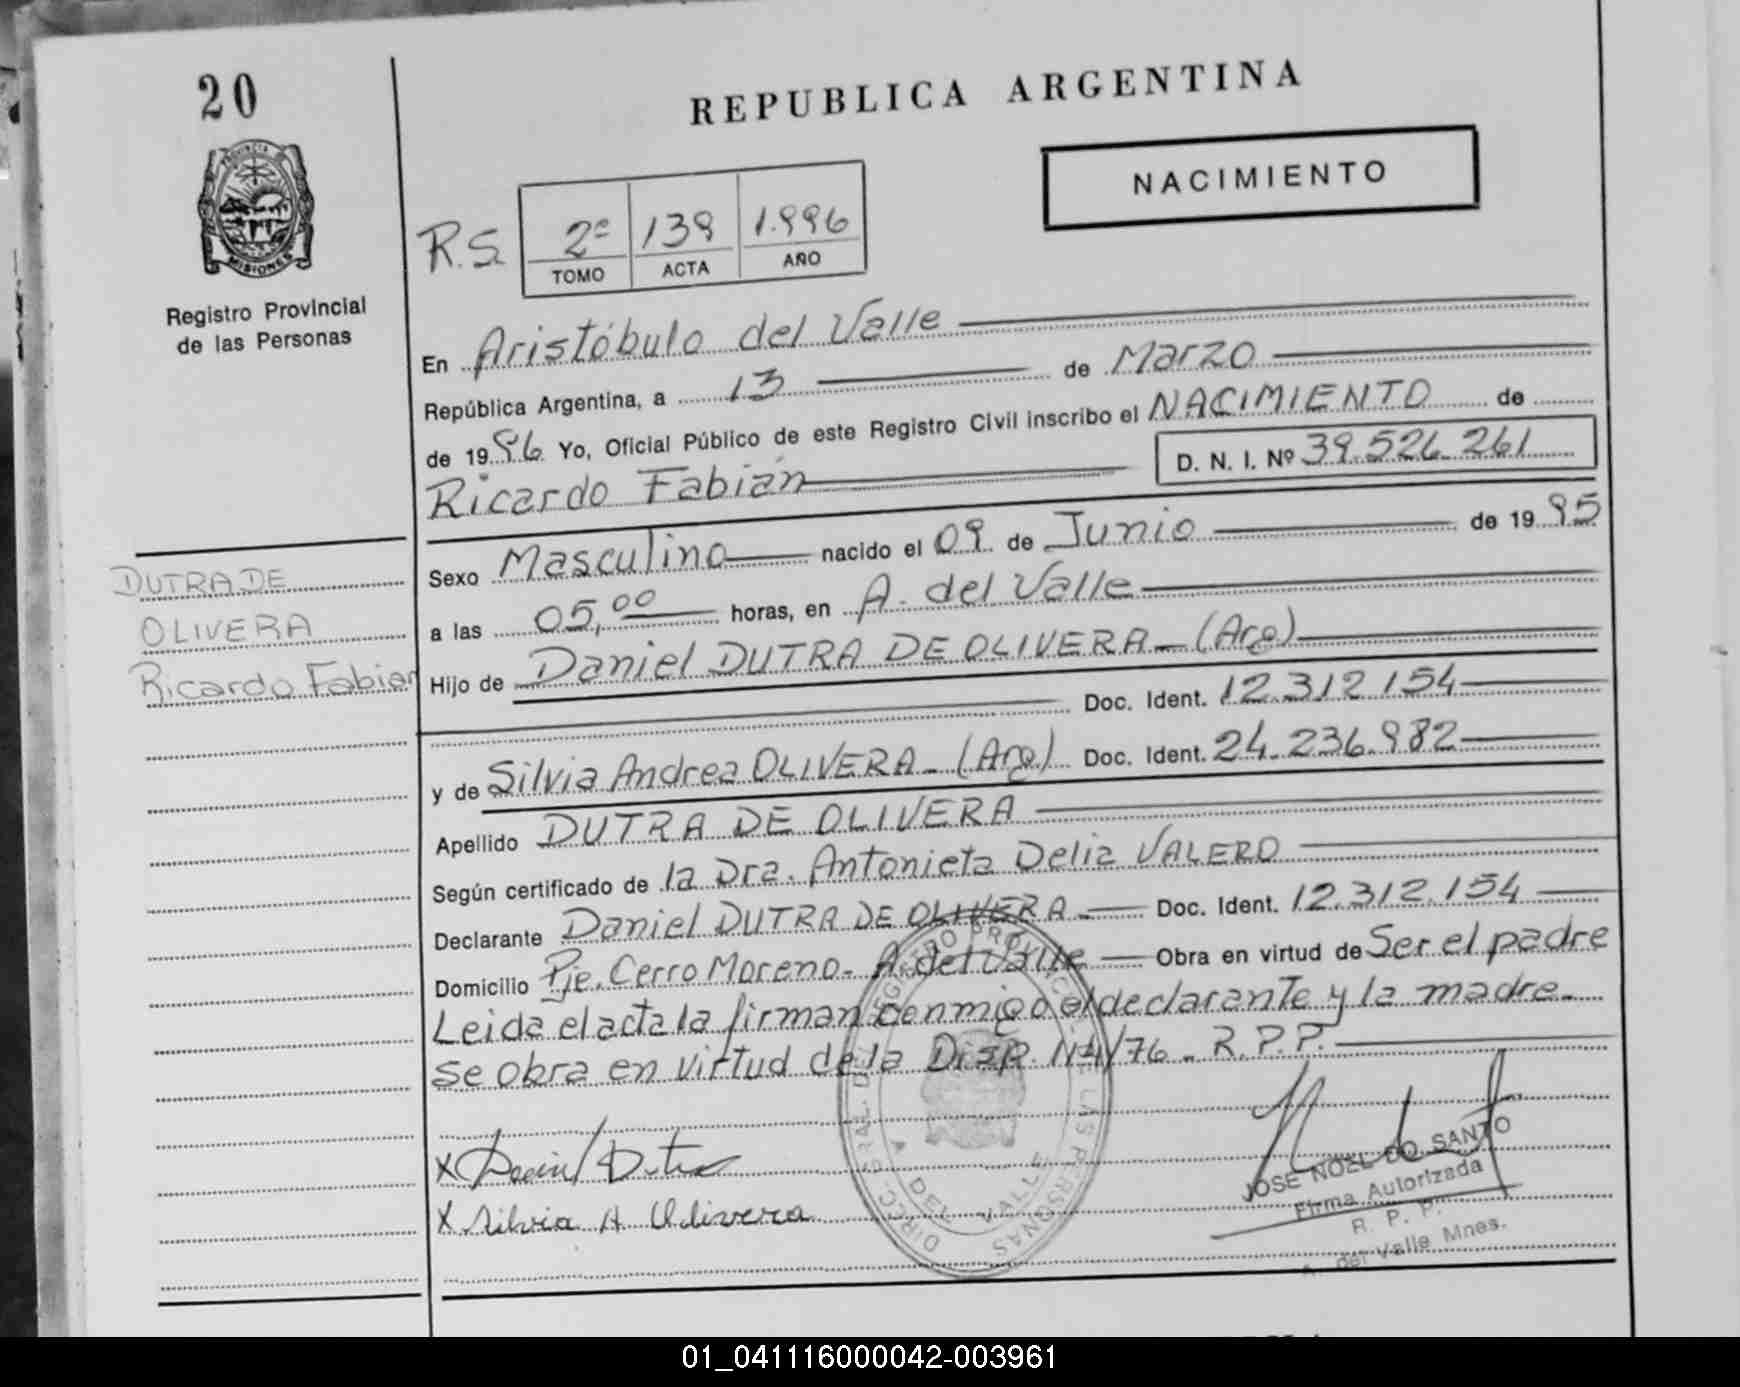 20
REPUBLICA ARGENTINA
NACIMIENTO
PROVINCIA DE
MISIONES
Registro Provincial
de las Personas
R.S. 2º 139 1.996
TOMO ACTA AÑO
En Aristóbulo del Valle
República Argentina, a 13 de Marzo
de 1996 Yo, Oficial Público de este Registro Civil inscribo el NACIMIENTO de
Ricardo Fabián D. N. I. Nº 39.526.261
Sexo Masculino nacido el 09 de Junio de 1995
a las 05,00 horas, en A. del Valle
Hijo de Daniel DUTRA DE OLIVERA - (Arg)
Doc. Ident. 12.312.154
y de Silvia Andrea OLIVERA - (Arg) Doc. Ident. 24.236.982
Apellido DUTRA DE OLIVERA
Según certificado de la Dra. Antonieta Delia VALERO
Declarante Daniel DUTRA DE OLIVERA - Doc. Ident. 12.312.154
Domicilio Pje. Cerro Moreno - A. del Valle - Obra en virtud de Ser el padre
Leida el acta la firman conmigo el declarante y la madre.
Se obra en virtud de la Disp. 114/76 - R.P.P.
DUTRA DE
OLIVERA
Ricardo Fabian
X Daniel Dutra
X Silvia A Olivera
DIREC. GRAL. DEL REGISTRO PROVINCIAL DE LAS PERSONAS
A. DEL VALLE
JOSE NOEL DO SANTO
Firma Autorizada
R. P. P.
A. del Valle Mnes.
01_041116000042-003961